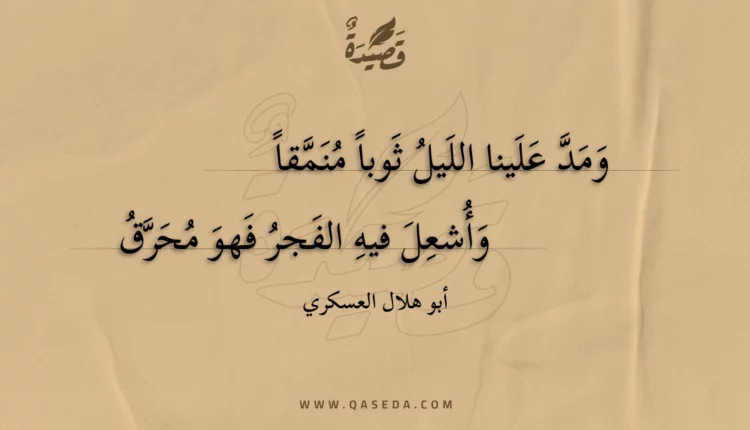 قَصِيدَةٌ
وَمَدَّ عَلَينا اللَيلُ ثَوباً مُنَمَّقاً
وَأُشعِلَ فيهِ الفَجرُ فَهوَ مُحَرَّقُ
أبو هلال العسكري
WWW.QASEDA.COM